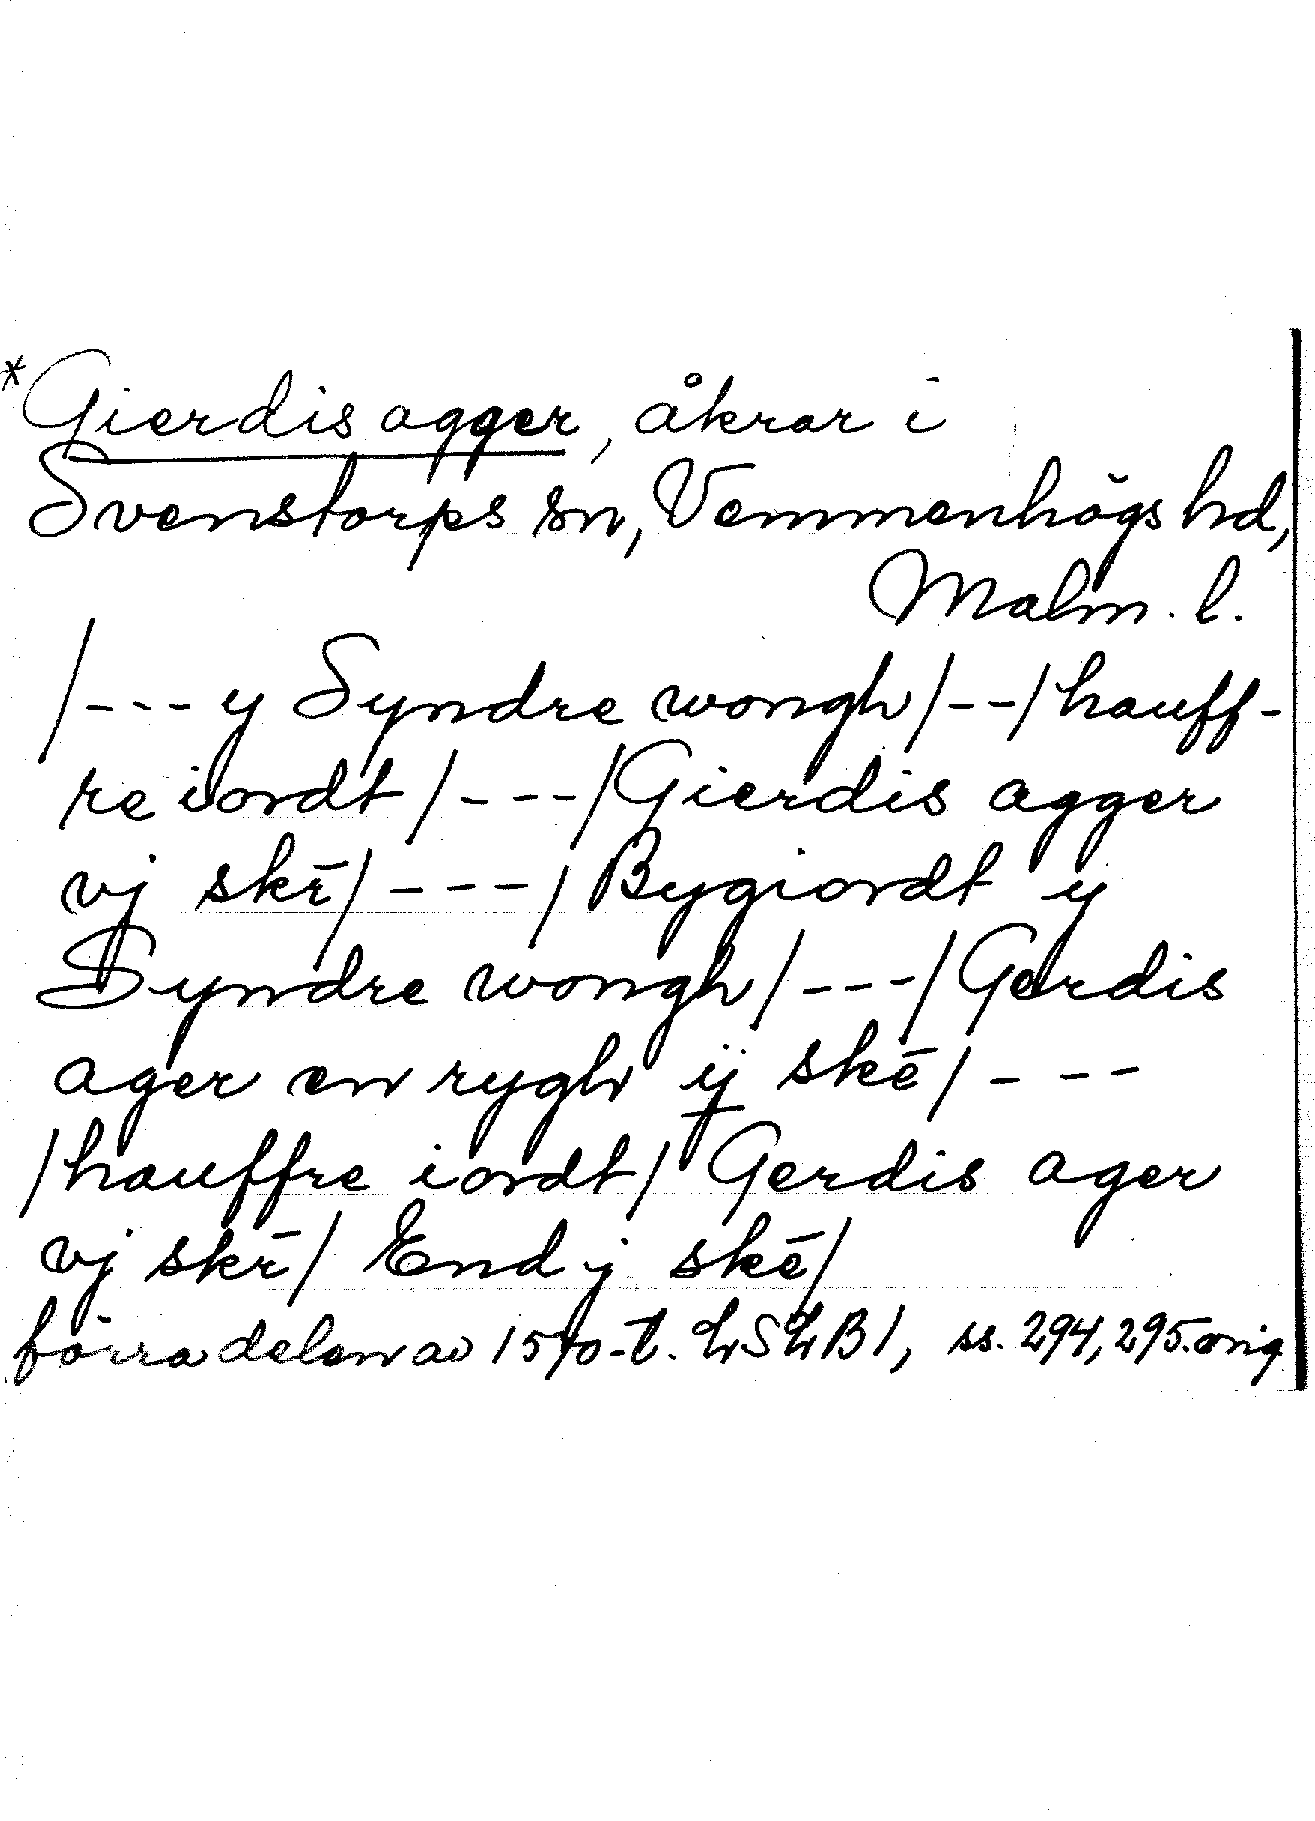 *Gierdis agger, åkrar i
Svenstorps sn, Vemmenhögs hd,
Malm. l.
/---y Syndre wongh/--/hauff-
re iordt/---/Gierdis agger
vj skr̄/---/Bygiordt y
Syndre wongh/---/Gerdis
ager en rygh ij skē/---
/hauffre iordt/ Gerdis ager
vj skr̄/ End j skē/
förra delen av 1570-t. LSLB1, ss. 294, 295. orig